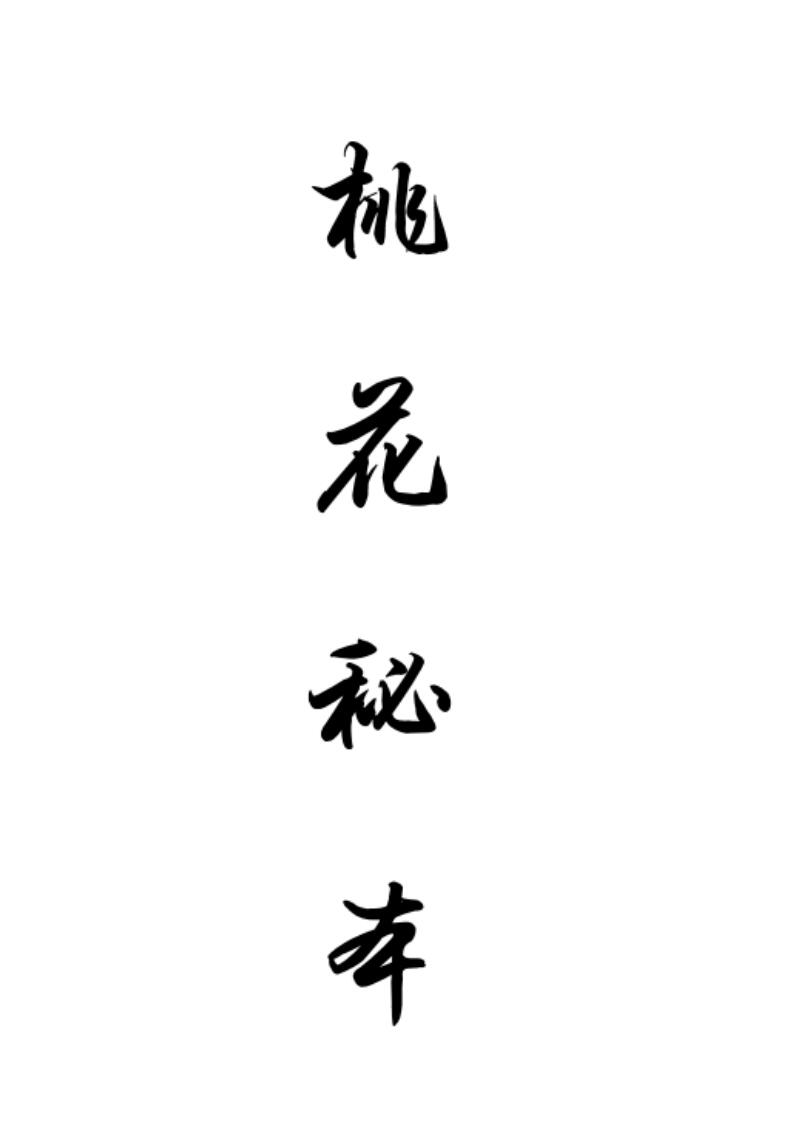 桃花秘本